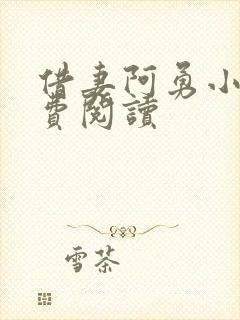 借妻阿勇小
費閱讀
雪茶